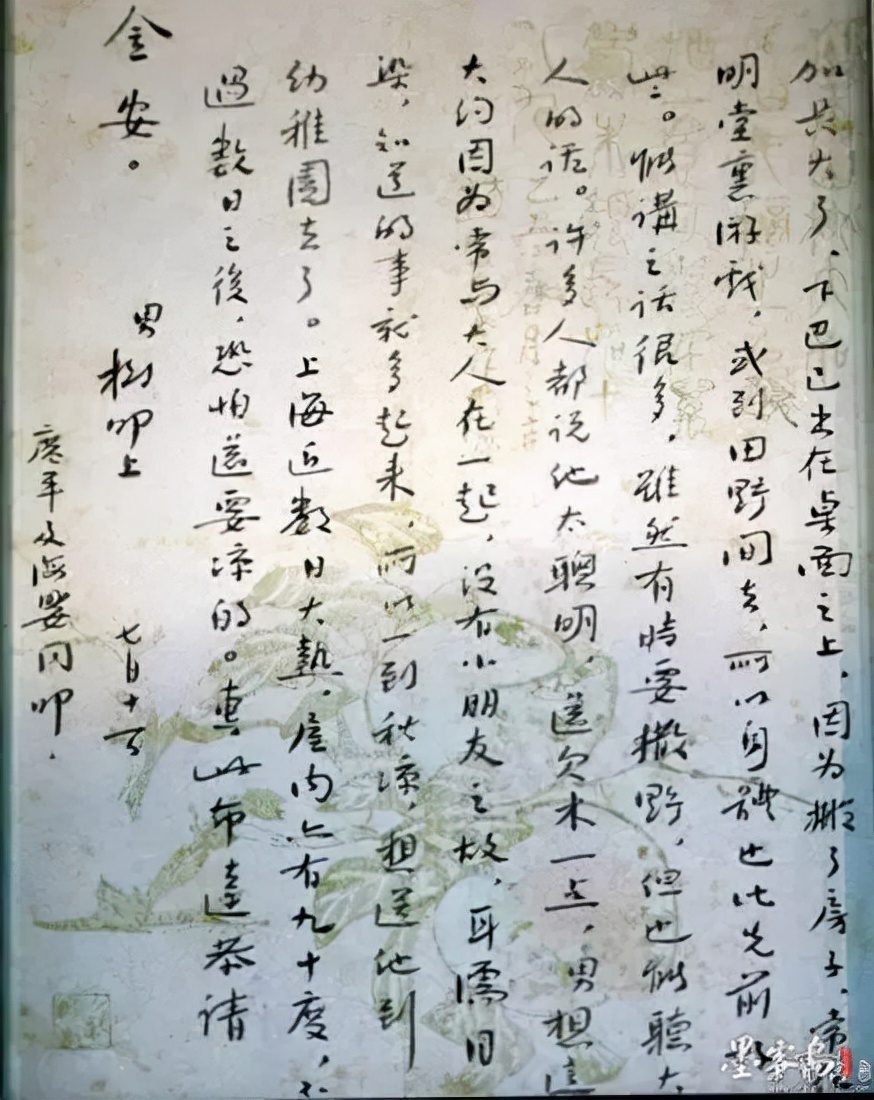 加長大了、下巴已出在桌面之上，因为搬了房子，常在
明堂裏游戏，或到田野间去，所以身體也比先前好
些。能講之话很多，雖然有時要撒野，但也能聽大
人的话。许多人都说他太聰明，還欠木一点，男想這
大约因为常与大人在一起，没有小朋友之故，耳濡目
染，知道的事就多起来，所以一到秋凉，想送他到
幼稚園去了。上海近数日大熱，屋内亦有九十度，不
過数日之後，恐怕還要凉的。專此布達恭请
金安。
男樹叩上 七月十一日
廣平及海嬰同叩．
墨